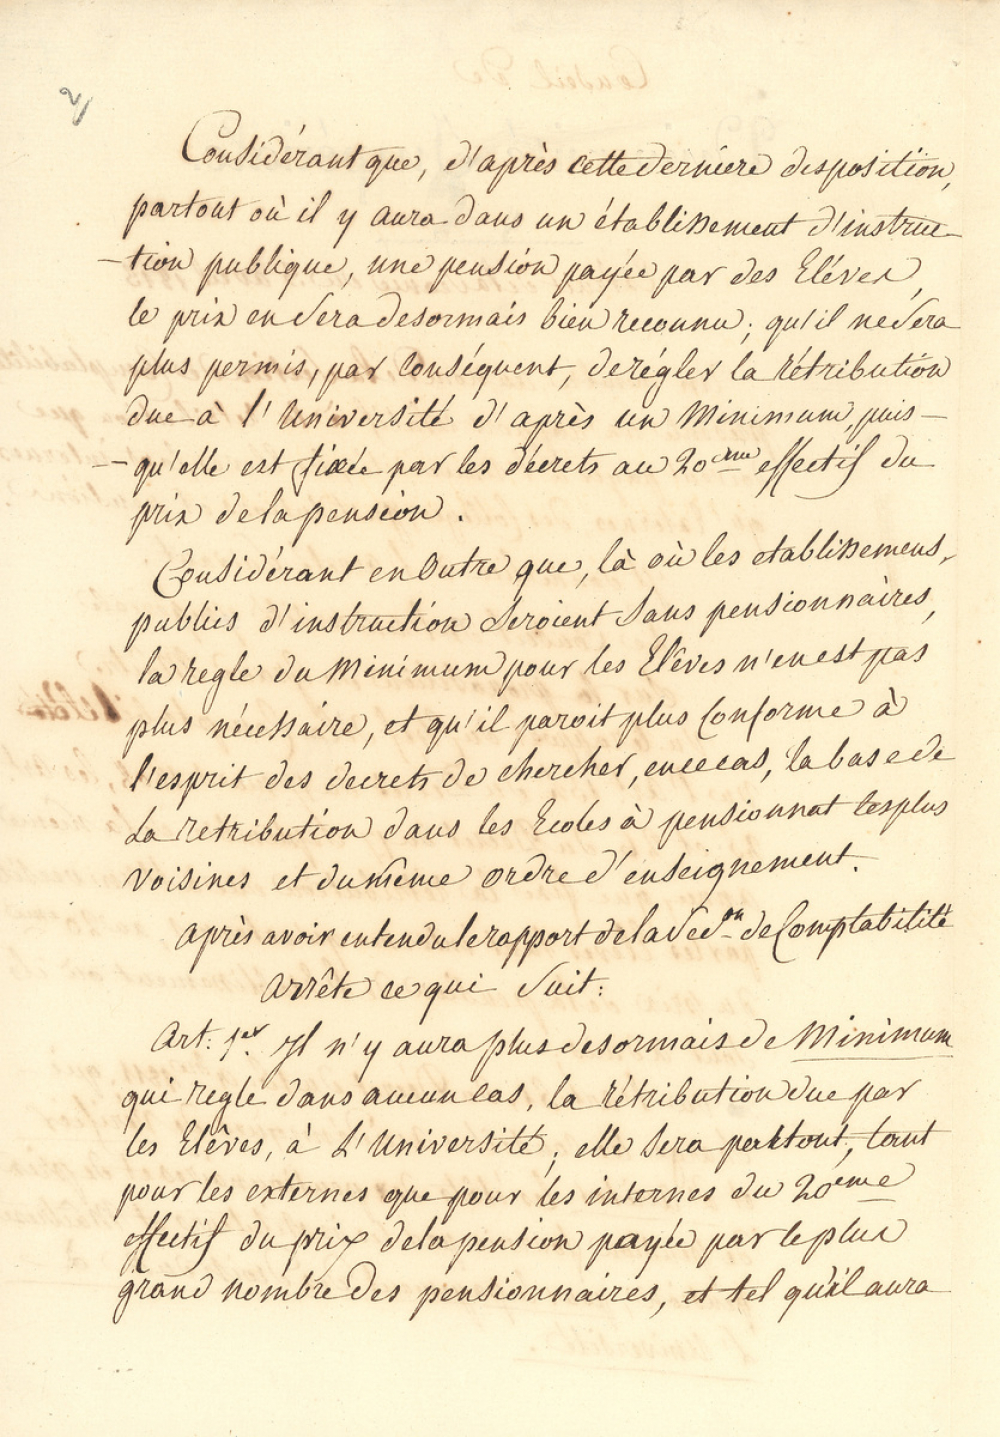 2/
Considérant que, d'après cette derniere disposition,
partout où il y aura dans un établissement d'instruc-
-tion publique, une pension payée par des Eléves,
le prix en sera desormais bien reconnu; qu'il ne sera
plus permis, par conséquent, de régler la rétribution
due à l'Université d'après un Minimum, puis-
-qu'elle est fixée par les décrets au 20eme effectif du
prix de la pension.
Considérant en Outre que, là où les etablissemens,
publics d'instruction seroient sans pensionnaires,
la regle du Minimum pour les Elêves n'en est pas
plus nécessaire, et qu'il paroit plus conforme à
l'esprit des decrets de chercher, en ce cas, la base de
La retribution dans les Ecoles à pensionnat les plus
Voisines et du même ordre d'enseignement.
Après avoir entendu le rapport de la Seon de Comptabilité
Arrête ce qui suit:
Art: 1er. Il n'y aura plus desormais de Minimum
qui regle dans aucun cas, la rétribution due par
les Elêves, à L'Université; elle sera partout, tant
pour les externes que pour les internes du 20eme
effectif du prix de la pension payée par le plus
grand nombre des pensionnaires, et tel qu'il aura